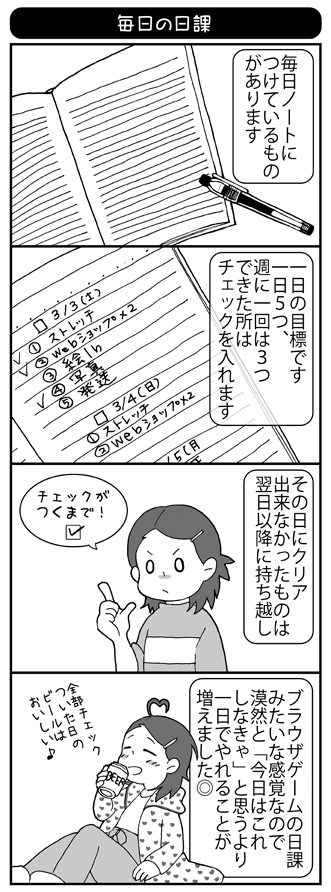 毎日の日課
毎日ノートに
つけているもの
があります
一日の目標です
一日5つ、
週に一回は3つ
できた所は
チェックを入れます
3/3(土)
①ストレッチ
②Webショップ×2
③絵1h
④写真
⑤発送
3/4(日)
①ストレッチ
②Webショップ×2
/5(月
その日にクリア
出来なかったものは
翌日以降に持ち越し
チェックが
つくまで!
ブラウザゲームの日課
みたいな感覚なので
漠然と「今日はこれ
しなきゃ」と思うより
一日でやれることが
増えました◎
全部チェック
ついた日の
ビールは
おいしい♪
BEER